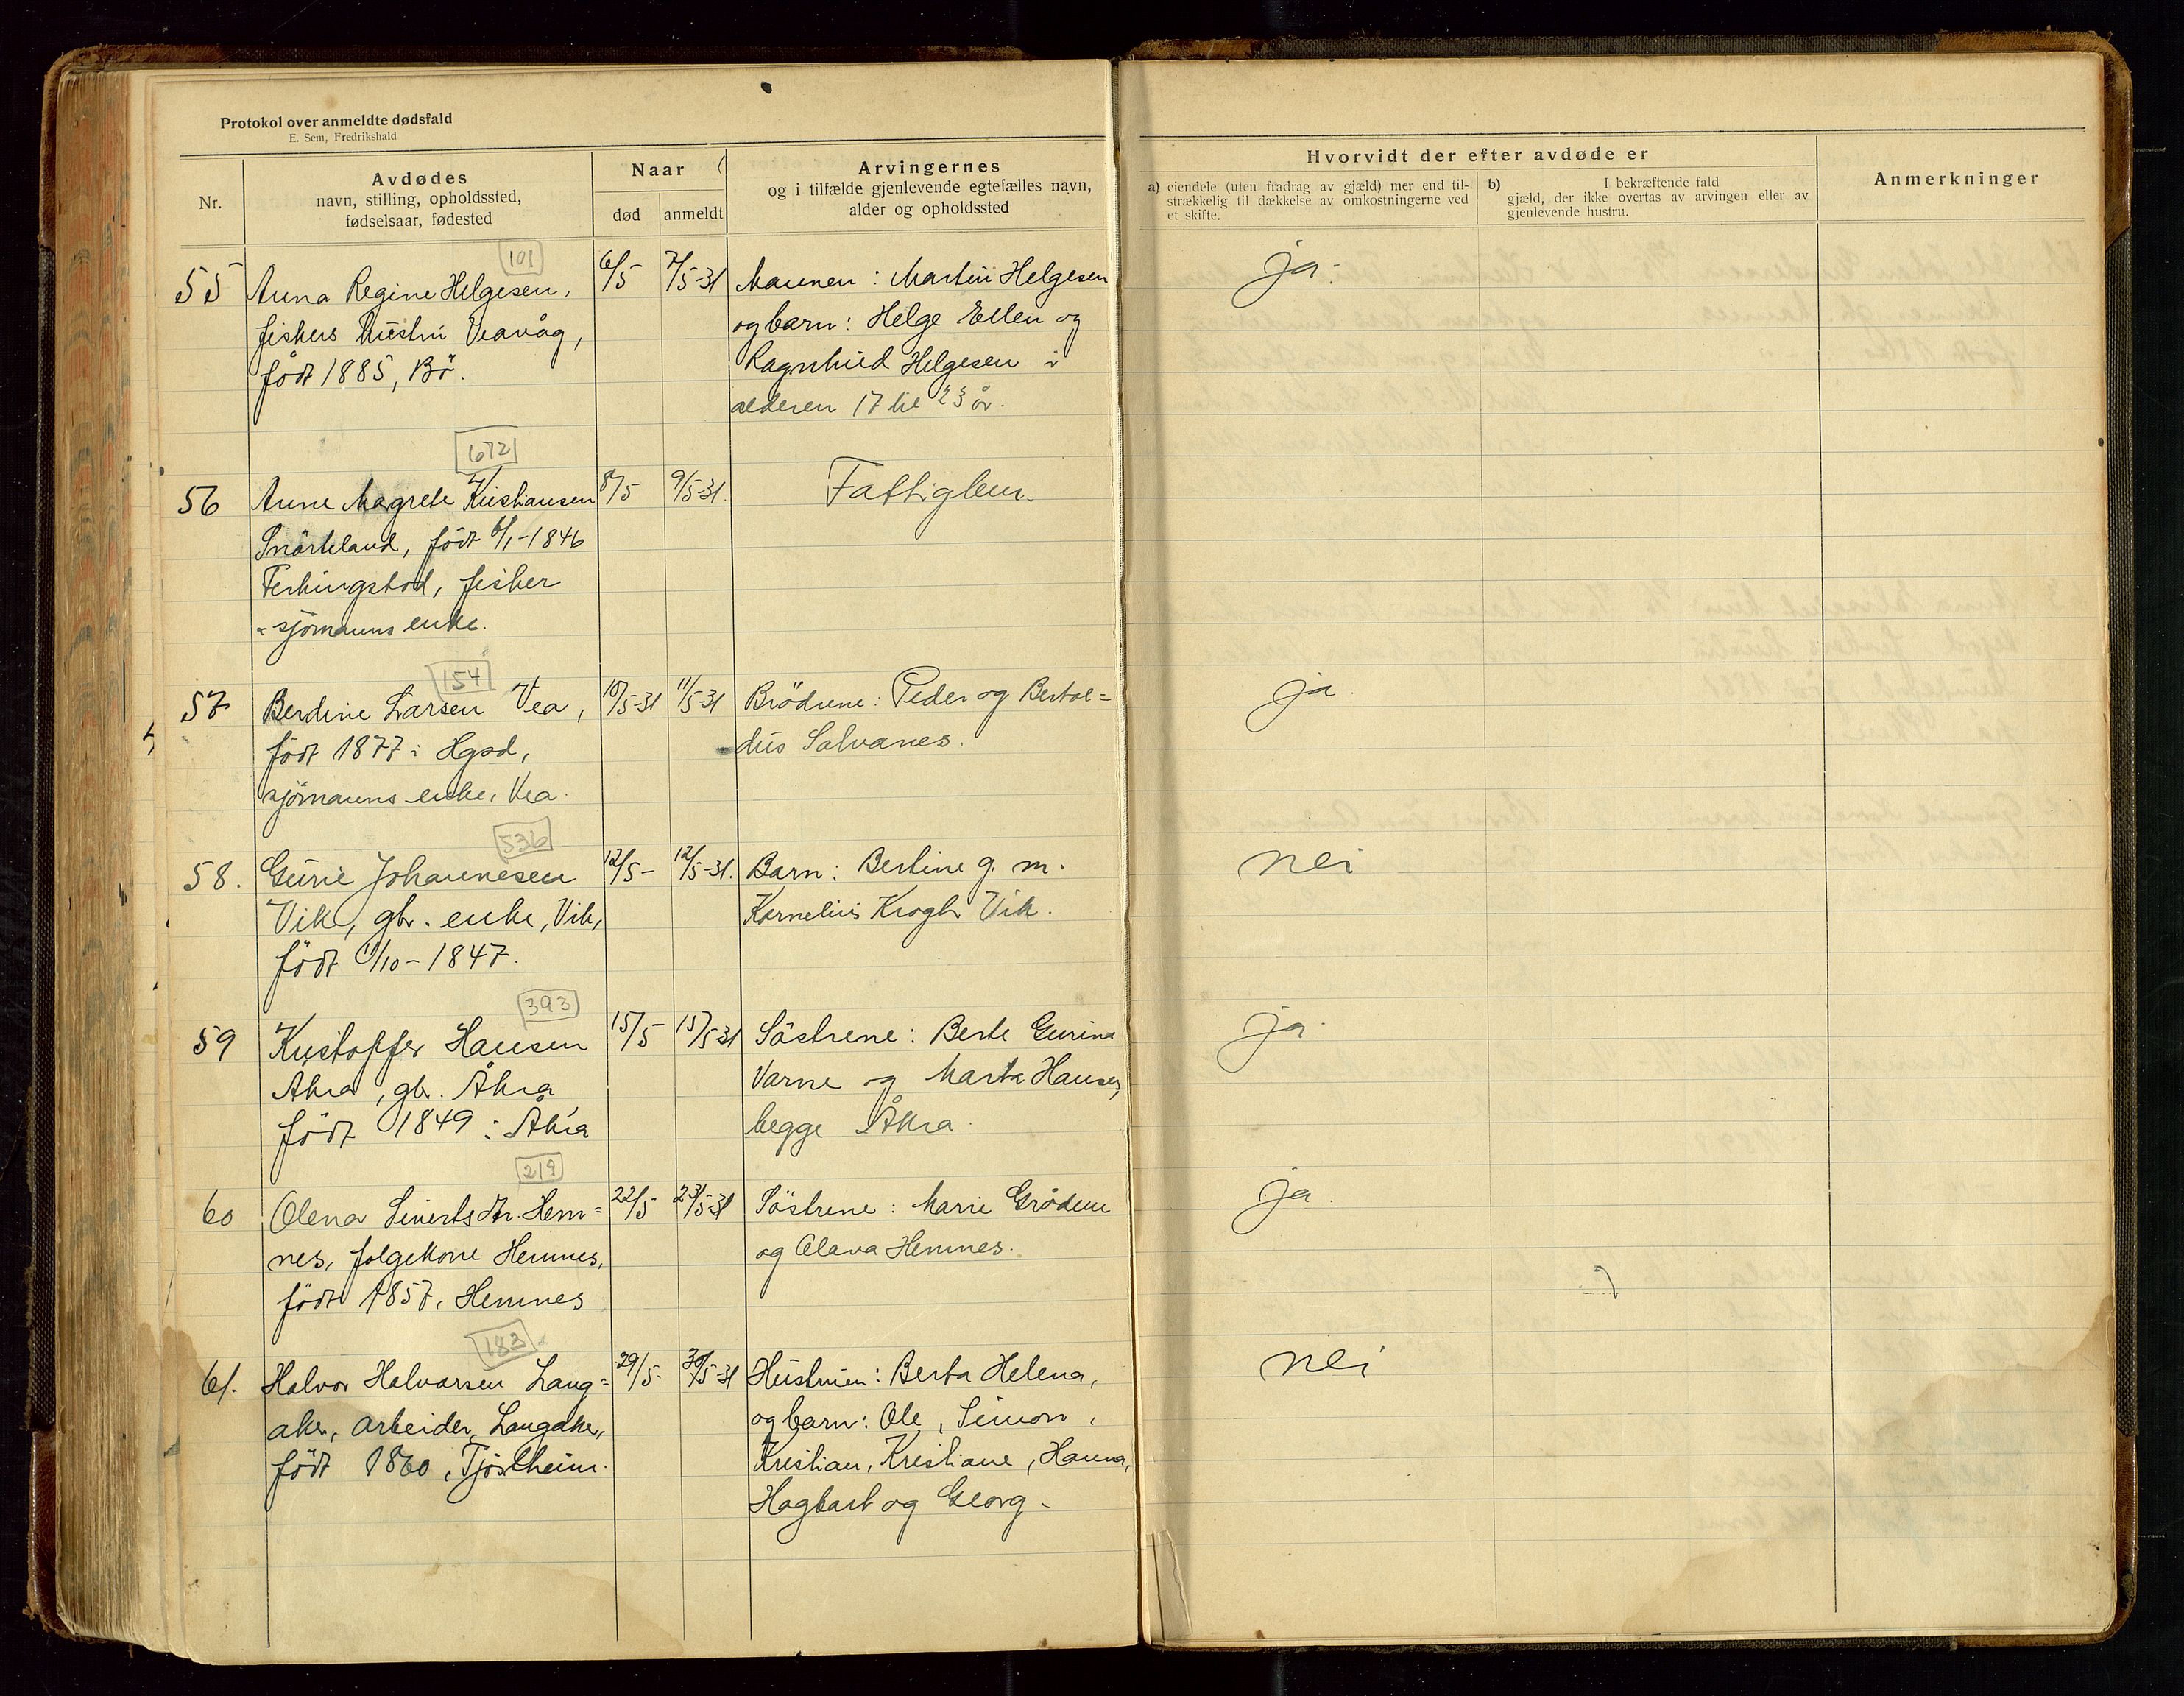 Protokol over anmeldte dødsfald
E. Sem, Fredrikshald
Nr.
Avdødes
navn, stilling, opholdssted,
fødselsaar, fødested
Naar
død
anmeldt
Arvingernes
og i tilfælde gjenlevende egtefælles navn,
alder og opholdssted
Hvorvidt der efter avdøde er
a) eiendele (uten fradrag av gjæld) mer end til-
strækkelig til dækkelse av omkostningerne ved
et skifte.
b) I bekræftende fald
gjæld, der ikke overtas av arvingen eller av
gjenlevende hustru.
Anmerkninger
101
55 Anna Regine Helgesen,
fiskers hustru Veavåg,
født 1885, Bö.
6/5 7/5-31
Mannen: Martin Helgesen
og barn: Helge Ellen og
Ragnhild Helgesen i
alderen 17 til 23 år.
ja.
672
56 Anne Magrete Kristiansen
Snörteland, født 6/1-1846
Ferkingstad, fisker
- sjömanns enke.
8/5 9/5-31.
Fattiglem.
154
57 Berdine Larsen Vea,
født 1877 i Hgsd,
sjömanns enke, Vea.
10/5-31 11/5-31
Brödrene: Peder og Bertol=
dus Salvanes.
ja.
536
58. Gurie Johannesen
Vik, gbr. enke, Vik,
født 1/10-1847.
12/5- 12/5-31.
Barn: Bertine g. m.
Kornelius Krogh Vik.
nei
393
59 Kristoffer Hansen
Åkra, gbr. Åkra
født 1849 i Åkra
15/5- 15/5-31
Söstrene: Berte Gurina
Varne og Marta Hansen,
begge Åkra.
ja.
219
60 Olena Sivertsdtr. Hem=
nes, folgekone Hemnes,
født 1857, Hemnes
22/5- 23/5-31
Söstrene: Marie Grödem
og Olava Hemnes.
ja.
183
61. Halvor Halvorsen Lang=
aker, arbeider, Langaker,
født 1860, Tjöstheim.
29/5- 30/5-31
Hustruen: Berta Helena,
og barn: Ole, Simon,
Kristian, Kristiane, Hanna,
Hagbart og Georg.
nei